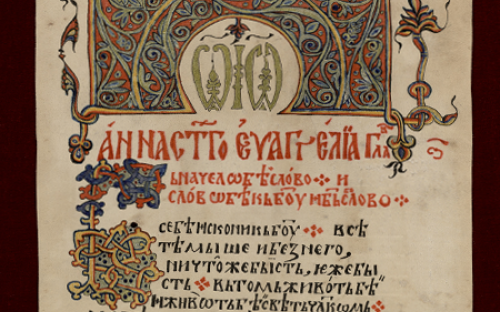 ѠІѠ
А́ННАСТ҃ГО ЕѴАГГЕЛІА ГЛАВ
ВЬНАЧЕЛѠБѢСЛОВО ⁘ И
СЛОВѠБѢКЬБОУ ИБЬСЛОВО ⁘
СЕБѢИСКОНИКЬБОУ ⁘ ВСѢ
ТѢМЫШЕ ИБЕЗНЕГО,
НИЧТОЖЕБЫСТЬ, ЮЖЕБЫ
СТЬ ⁘ ВЬТОМЬЖИВОТЬБѢ
ИЖИВОТЬБѢСВѢТЬЧЛКОМЬ